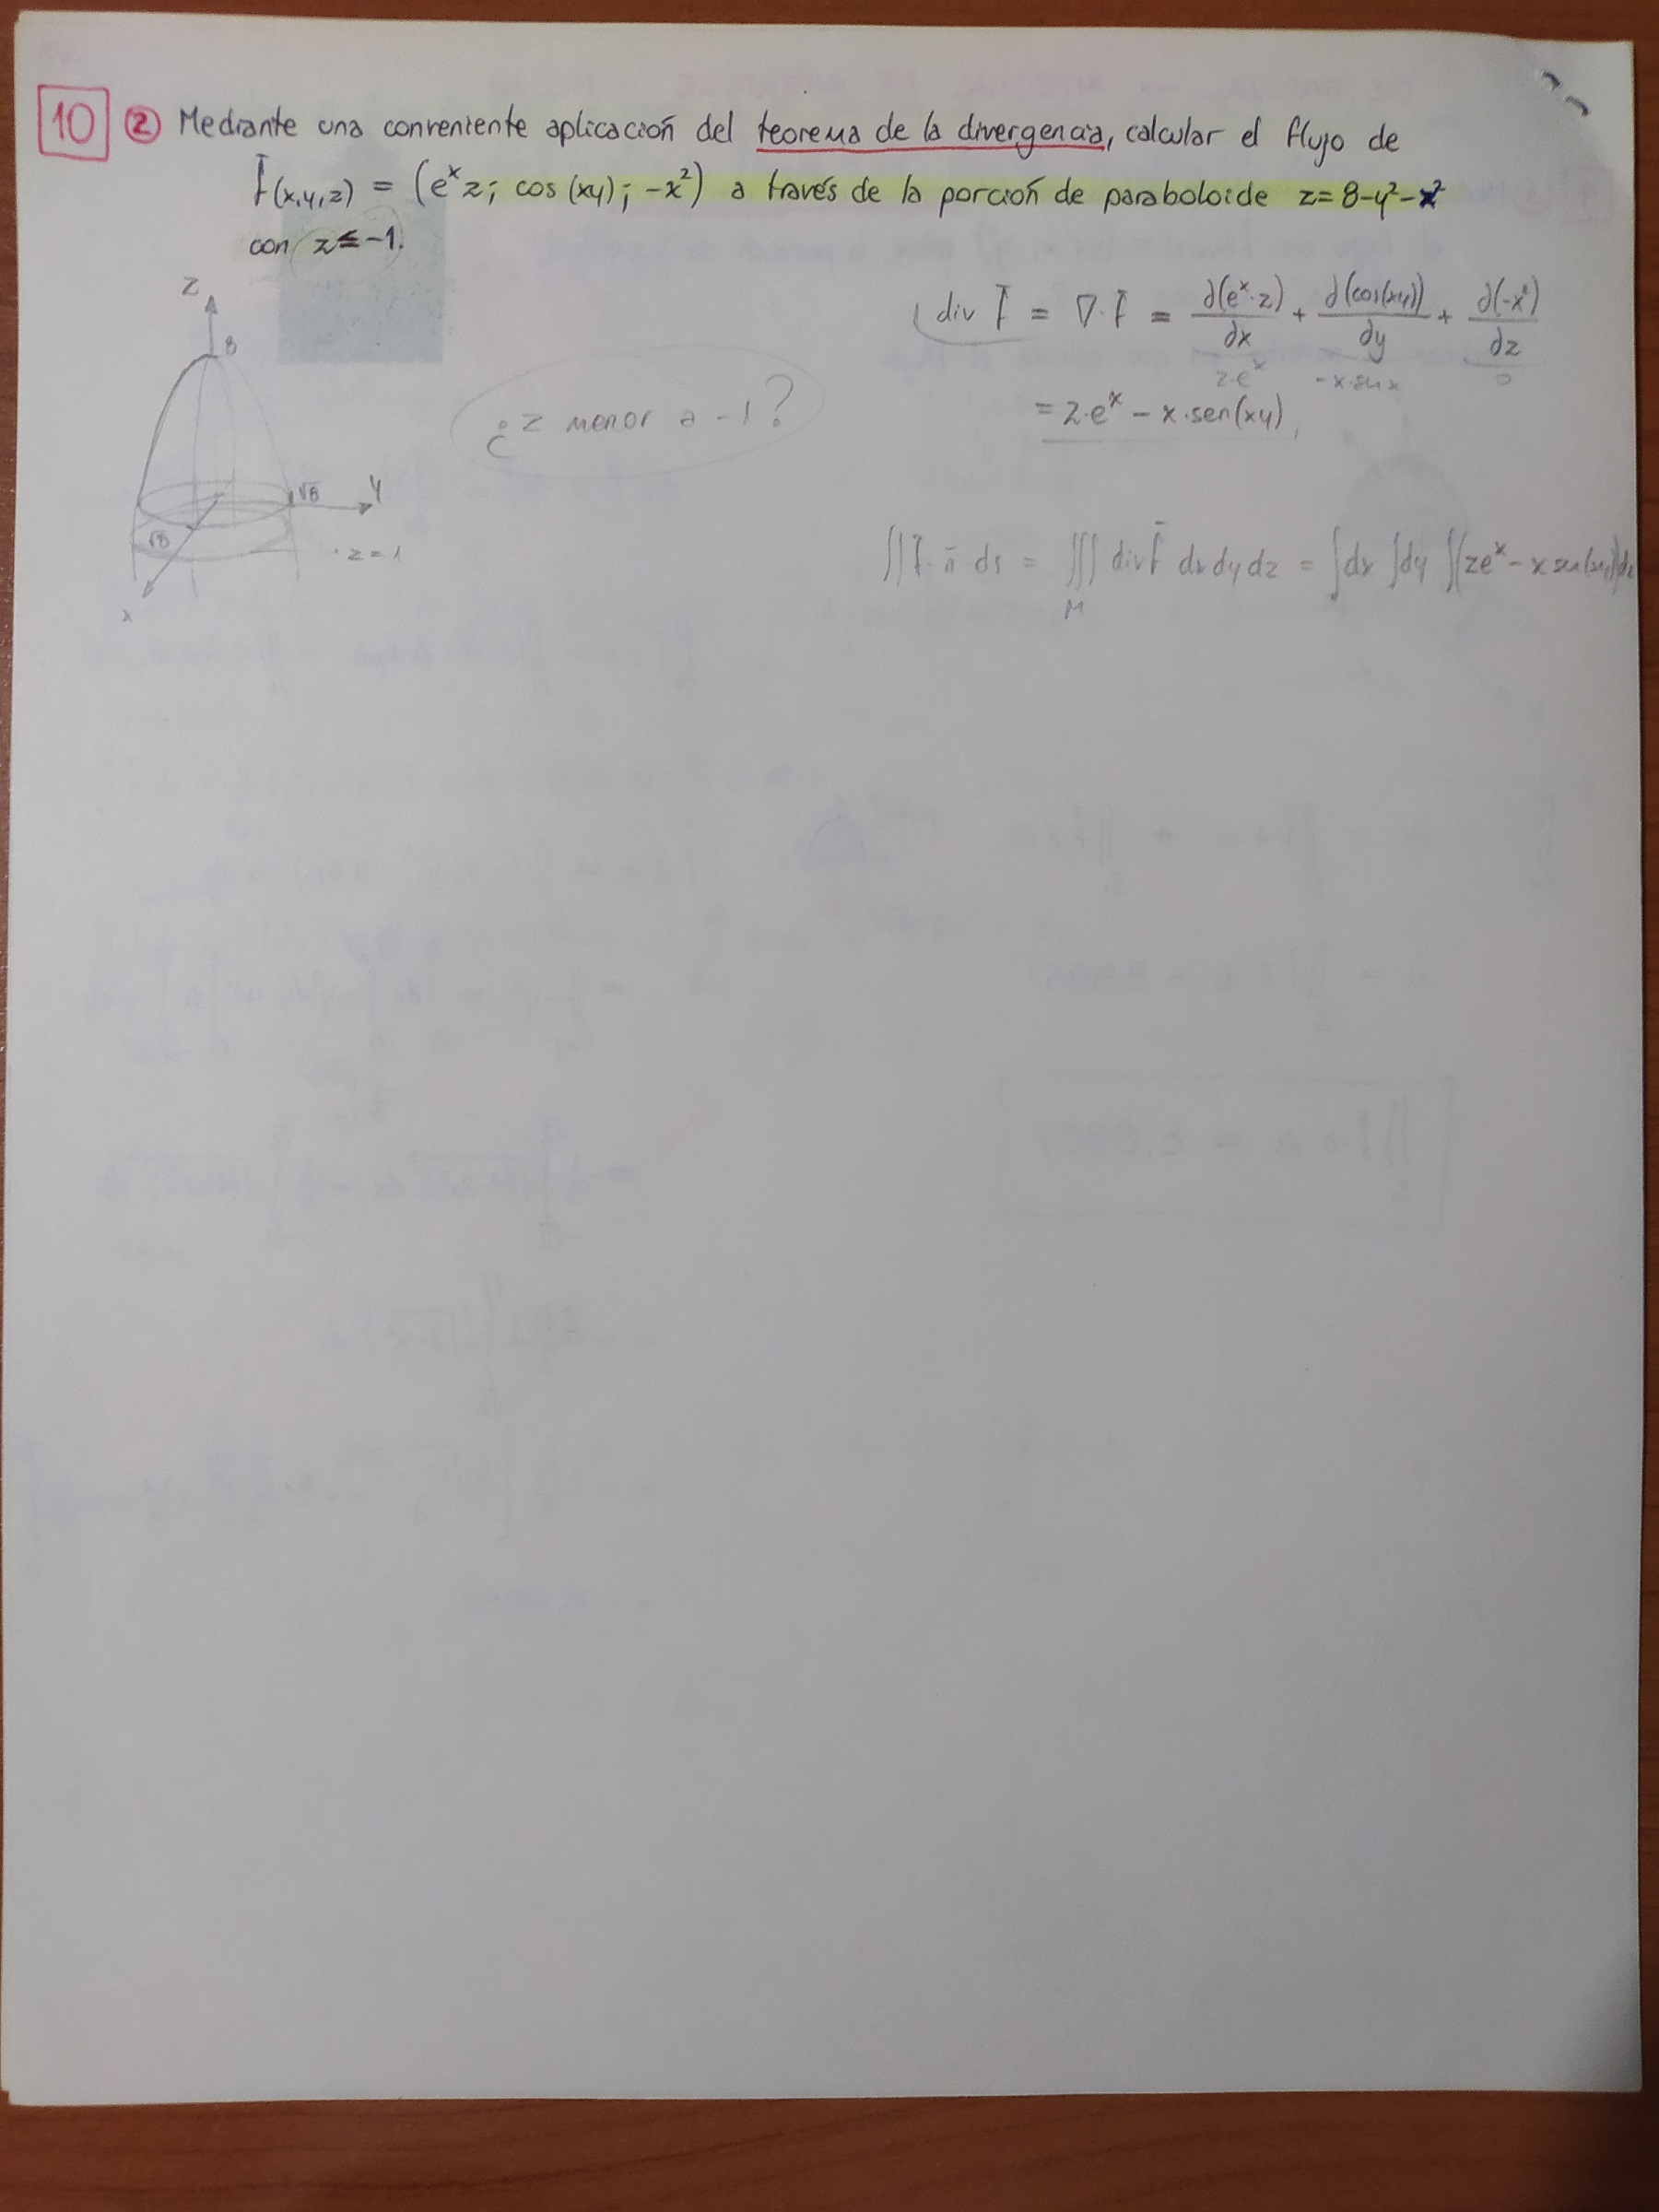 10 ② Mediante una conveniente aplicación del teorema de la divergencia, calcular el flujo de
f̄(x,y,z) = (eˣz; cos(xy); -x²) a través de la porción de paraboloide z=8-y²-x²
con z≤-1.
z
8
√8 y
√8
z=1
x
¿z menor a -1?
div f̄ = ∇·f̄ = ∂(eˣ·z)/∂x + ∂(cos(xy))/∂y + ∂(-x²)/∂z
z·eˣ -x·sen x 0
= z·eˣ - x·sen(xy)
∬ f̄·n̄ ds = ∭_M div f̄ dx dy dz = ∫dx ∫dy ∫(zeˣ - x sen(xy))dz